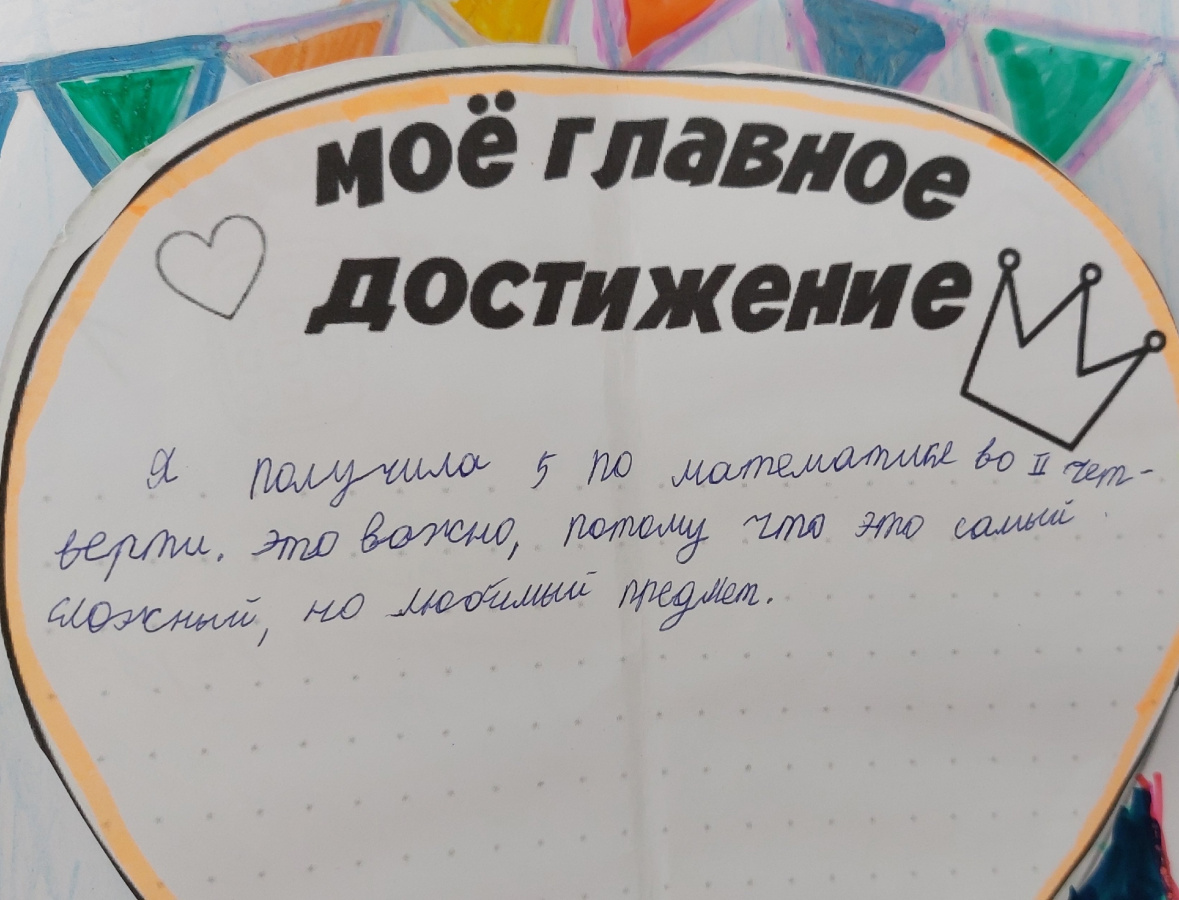 моё главное
достижение
Я получила 5 по математике во II чет-
верти. это важно, потому что это самый
сложный, но любимый предмет.